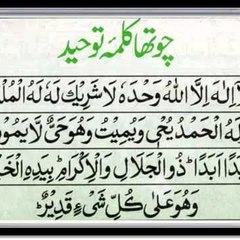 چوتھا کلمہ توحید
اِلٰهَ اِلَّا اللّٰهُ وَحْدَهٗ لَا شَرِيْكَ لَهٗ لَهُ
لَهُ الْحَمْدُ يُحْيٖ وَيُمِيْتُ وَهُوَ حَيٌّ لَّا
اَبَدًا ؕ ذُو الْجَلَالِ وَالْاِكْرَامِ ؕ بِيَدِهِ
وَهُوَ عَلٰى كُلِّ شَیْءٍ قَدِيْرٌ ؕ